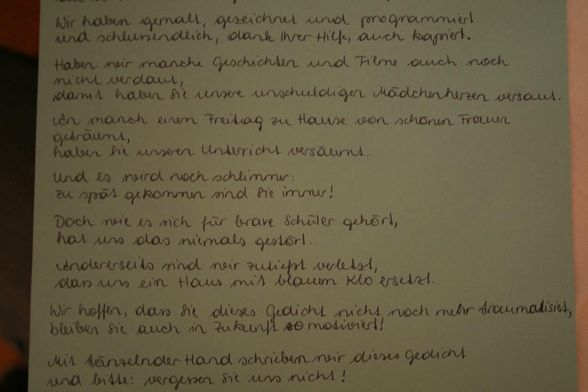 Wir haben gemalt, gezeichnet und programmiert
und schlussendlich, dank Ihrer Hilfe, auch kapiert.
Haben wir manche Geschichten und Filme auch noch
nicht verdaut,
damit haben Sie unsere unschuldigen Mädchenherzen versaut.
An manch einem Freitag zu Hause von schönen Frauen
geträumt,
haben Sie unseren Unterricht versäumt.
Und es wird noch schlimmer:
zu spät gekommen sind Sie immer!
Doch wie es sich für brave Schüler gehört,
hat uns das niemals gestört.
Andererseits sind wir zutiefst verletzt,
dass uns ein Haus mit blauem Klo ersetzt.
Wir hoffen, dass Sie dieses Gedicht nicht noch mehr traumatisiert,
bleiben Sie auch in Zukunft so motiviert!
Mit tänzelnder Hand schrieben wir dieses Gedicht
und bitte: vergessen Sie uns nicht!